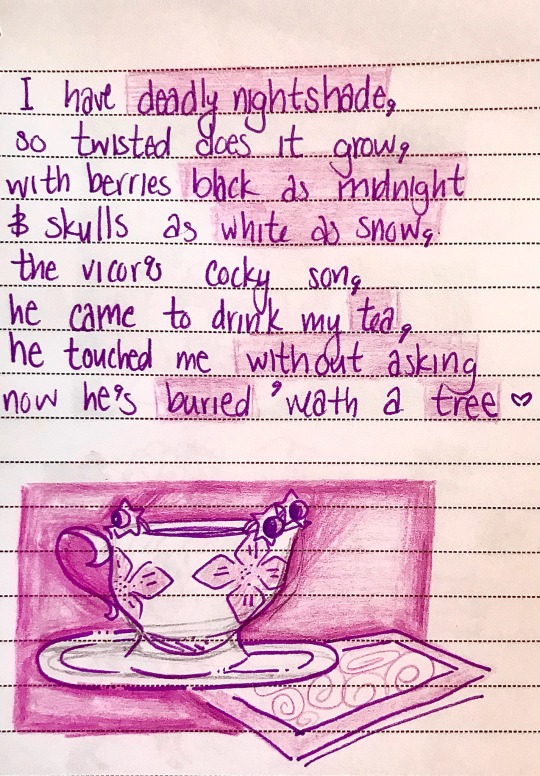 I have deadly nightshade,
so twisted does it grow,
with berries black as midnight
& skulls as white as snow,
the vicar's cocky son,
he came to drink my tea,
he touched me without asking
now he's buried 'neath a tree ♡